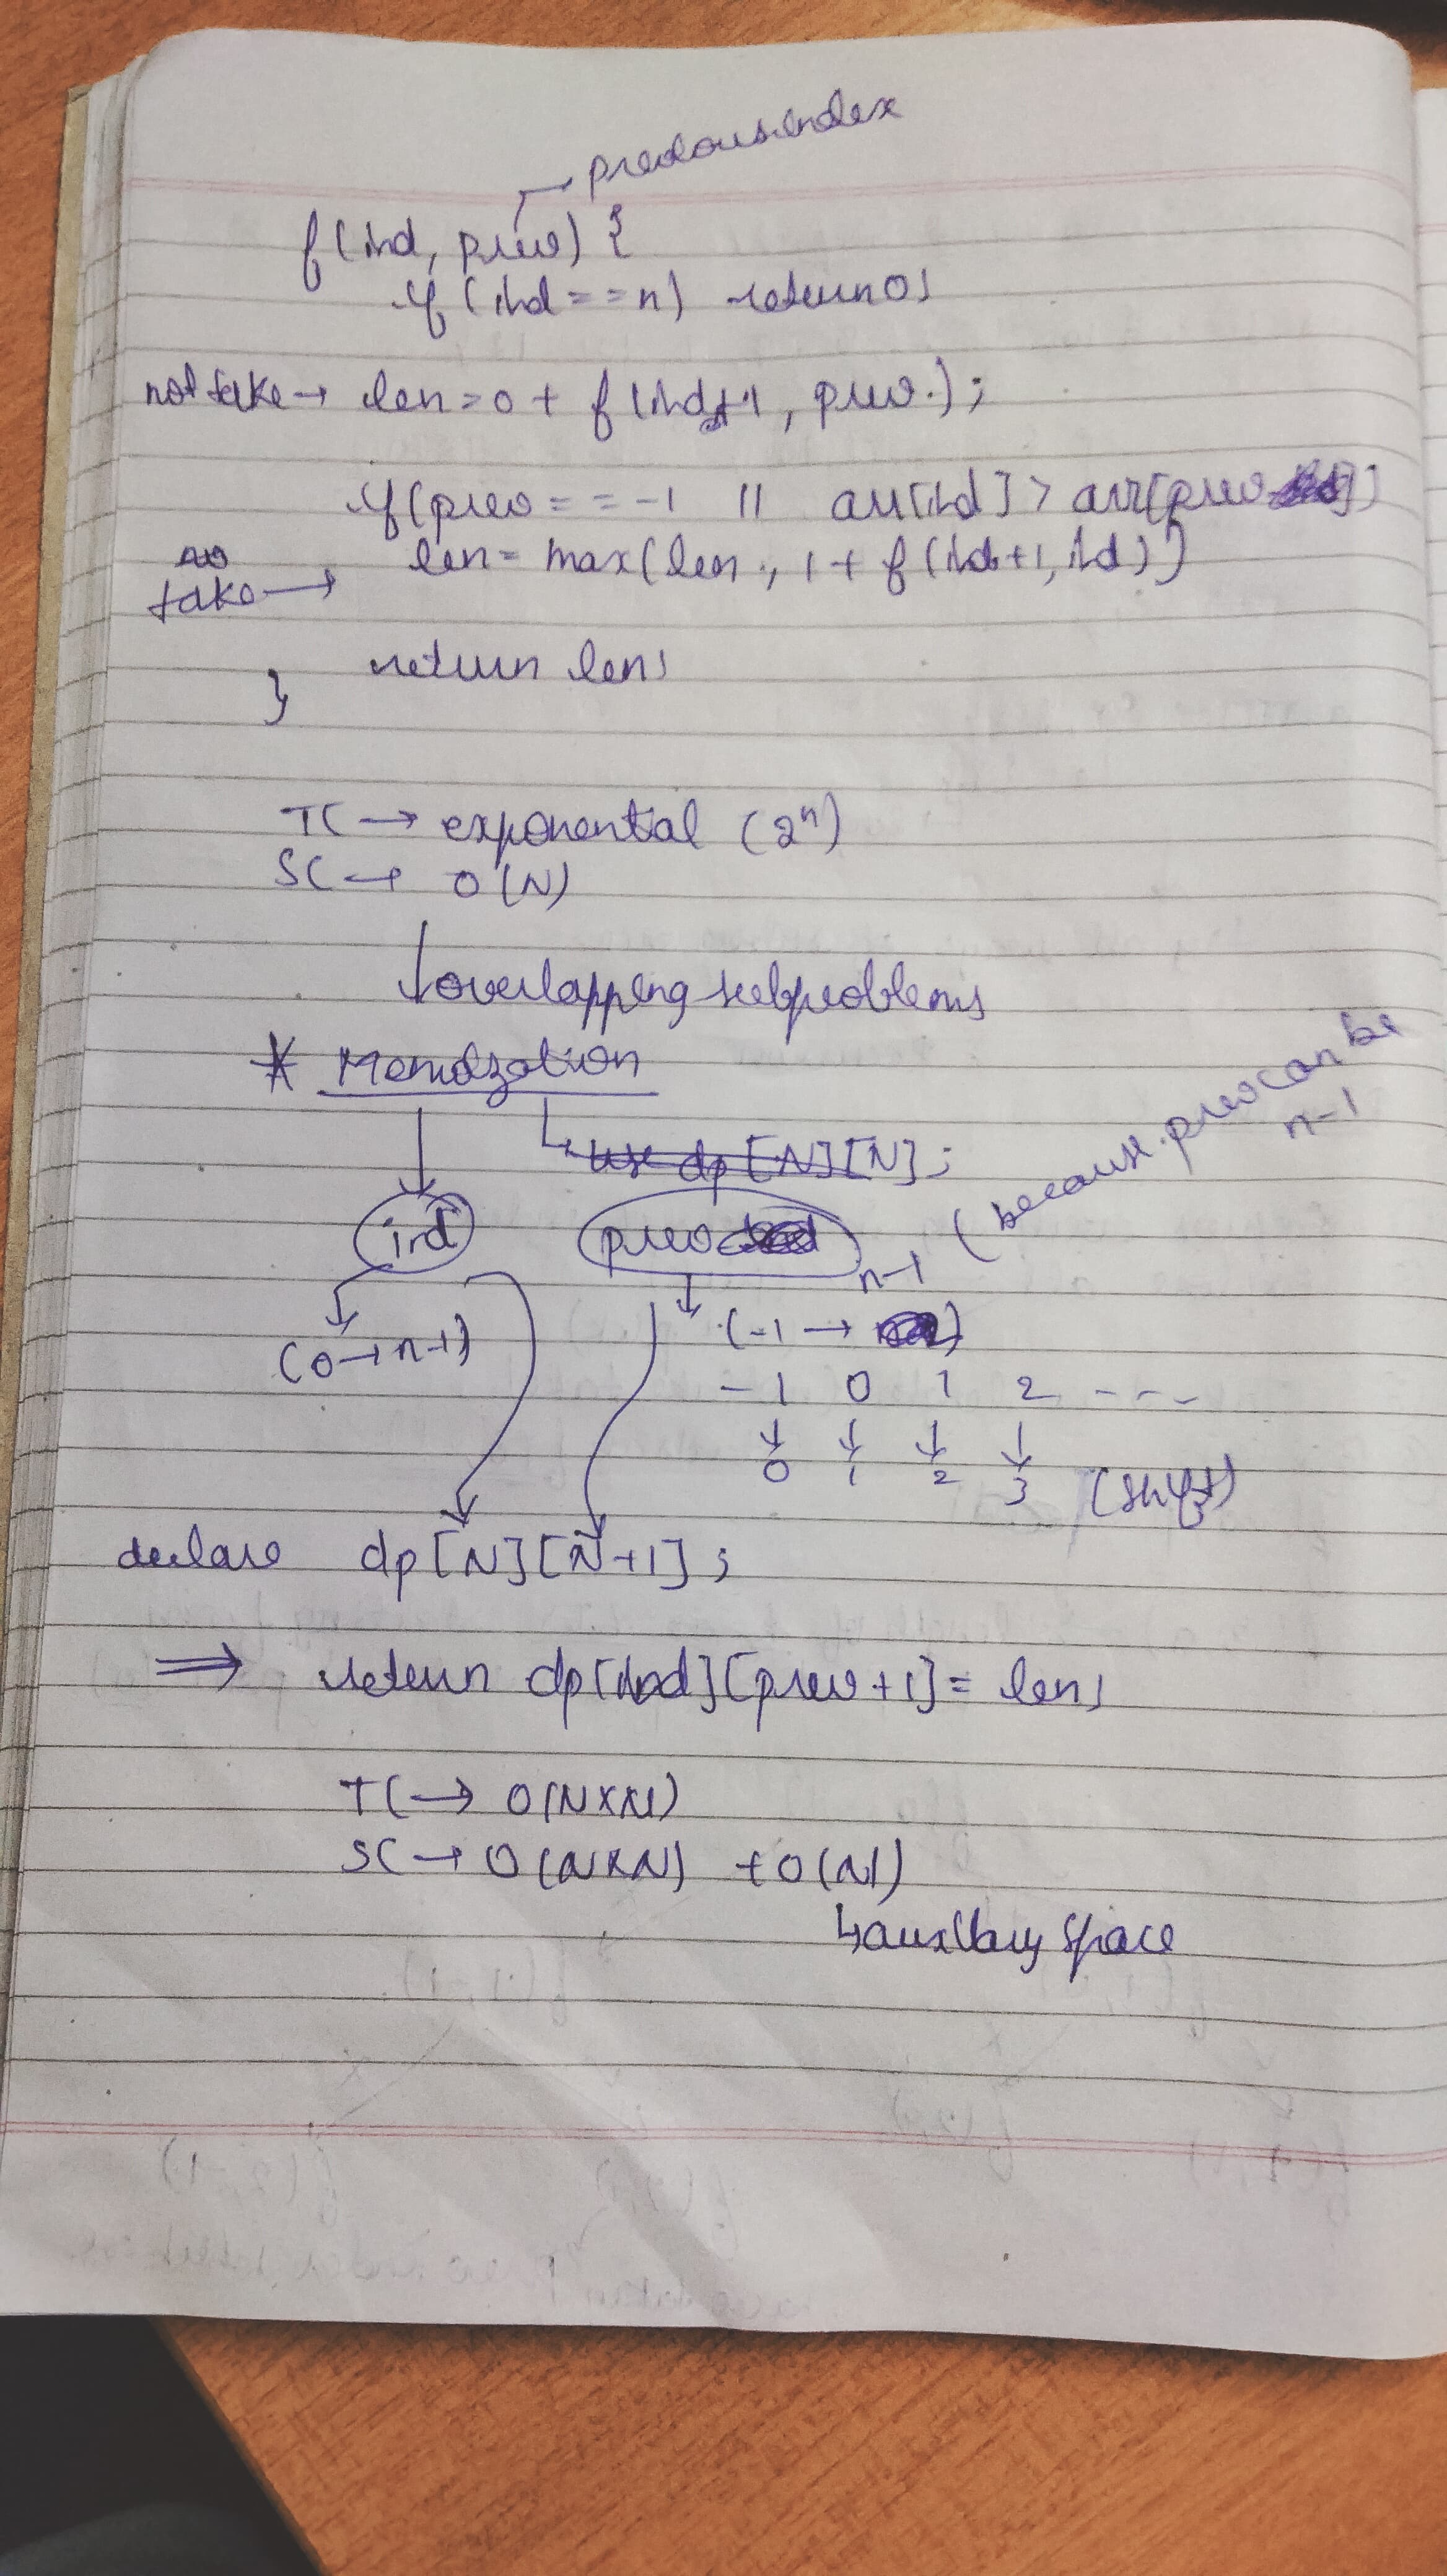 previousindex
f(ind, prev) {
if (ind == n) return 0;
not take → len = 0 + f(ind+1, prev.);
if(prev == -1 || arr[ind] > arr[prev])
len = max(len, 1 + f(ind+1, ind))
take →
return len;
}
TC → exponential (2ⁿ)
SC → O(N)
↓ overlapping subproblems
* Memoization
↳ use dp [N][N];
(because prev can be
n-1
ind prev
n-1
(0 → n-1) (-1 → )
-1 0 1 2 ---
↓ ↓ ↓ ↓
0 1 2 3 (shift)
declare dp[N][N+1];
⇒ return dp[ind][prev+1] = len;
TC → O(N×N)
SC → O(N×N) + O(N)
↳ auxillary space